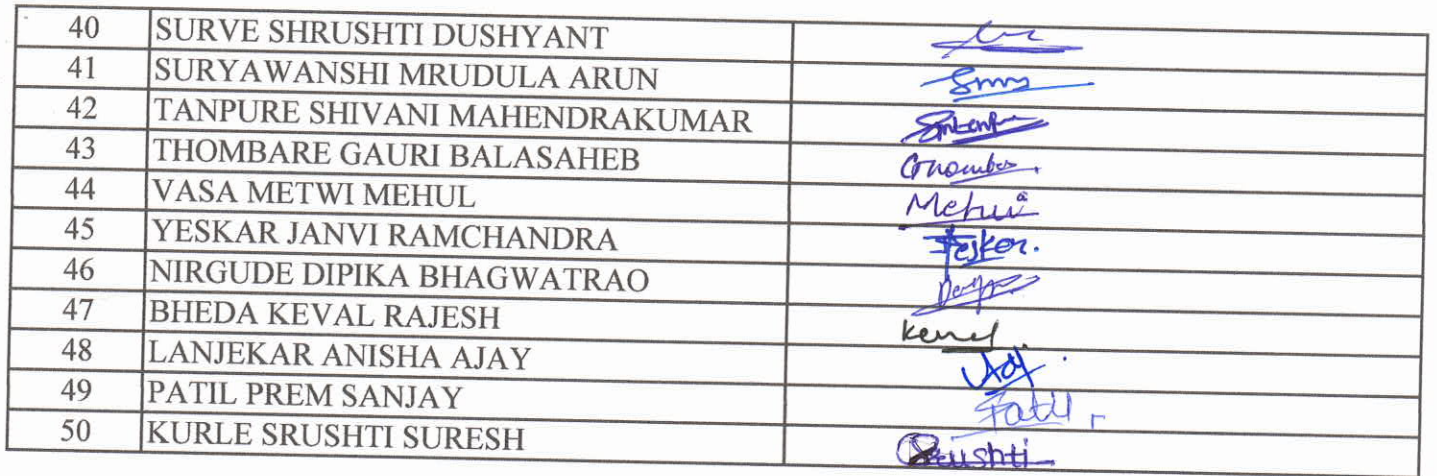 40 SURVE SHRUSHTI DUSHYANT
41 SURYAWANSHI MRUDULA ARUN
42 TANPURE SHIVANI MAHENDRAKUMAR
43 THOMBARE GAURI BALASAHEB
44 VASA METWI MEHUL
45 YESKAR JANVI RAMCHANDRA
46 NIRGUDE DIPIKA BHAGWATRAO
47 BHEDA KEVAL RAJESH
48 LANJEKAR ANISHA AJAY
49 PATIL PREM SANJAY
50 KURLE SRUSHTI SURESH